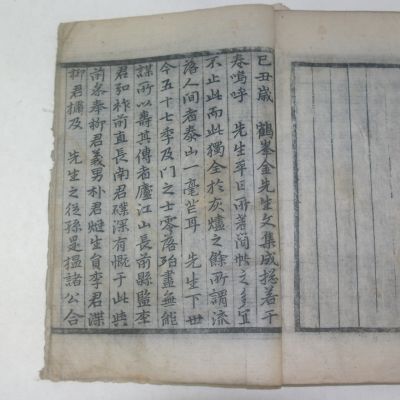 己丑歲 鶴峯金先生文集成揔若干
卷嗚呼 先生平日所著簡帙之多宜
不止此而此獨全於灰燼之餘所謂流
落人間者泰山一毫芒耳 先生下世
今五十七季及門之士零落殆盡無能
謀所以壽其傳者廬江山長前縣監李
君弘祚前直長南君磼深有慨于此與
前參奉柳君義男朴君𤏐生員李君渫
柳君㰒及 先生之從孫是榲諸公合